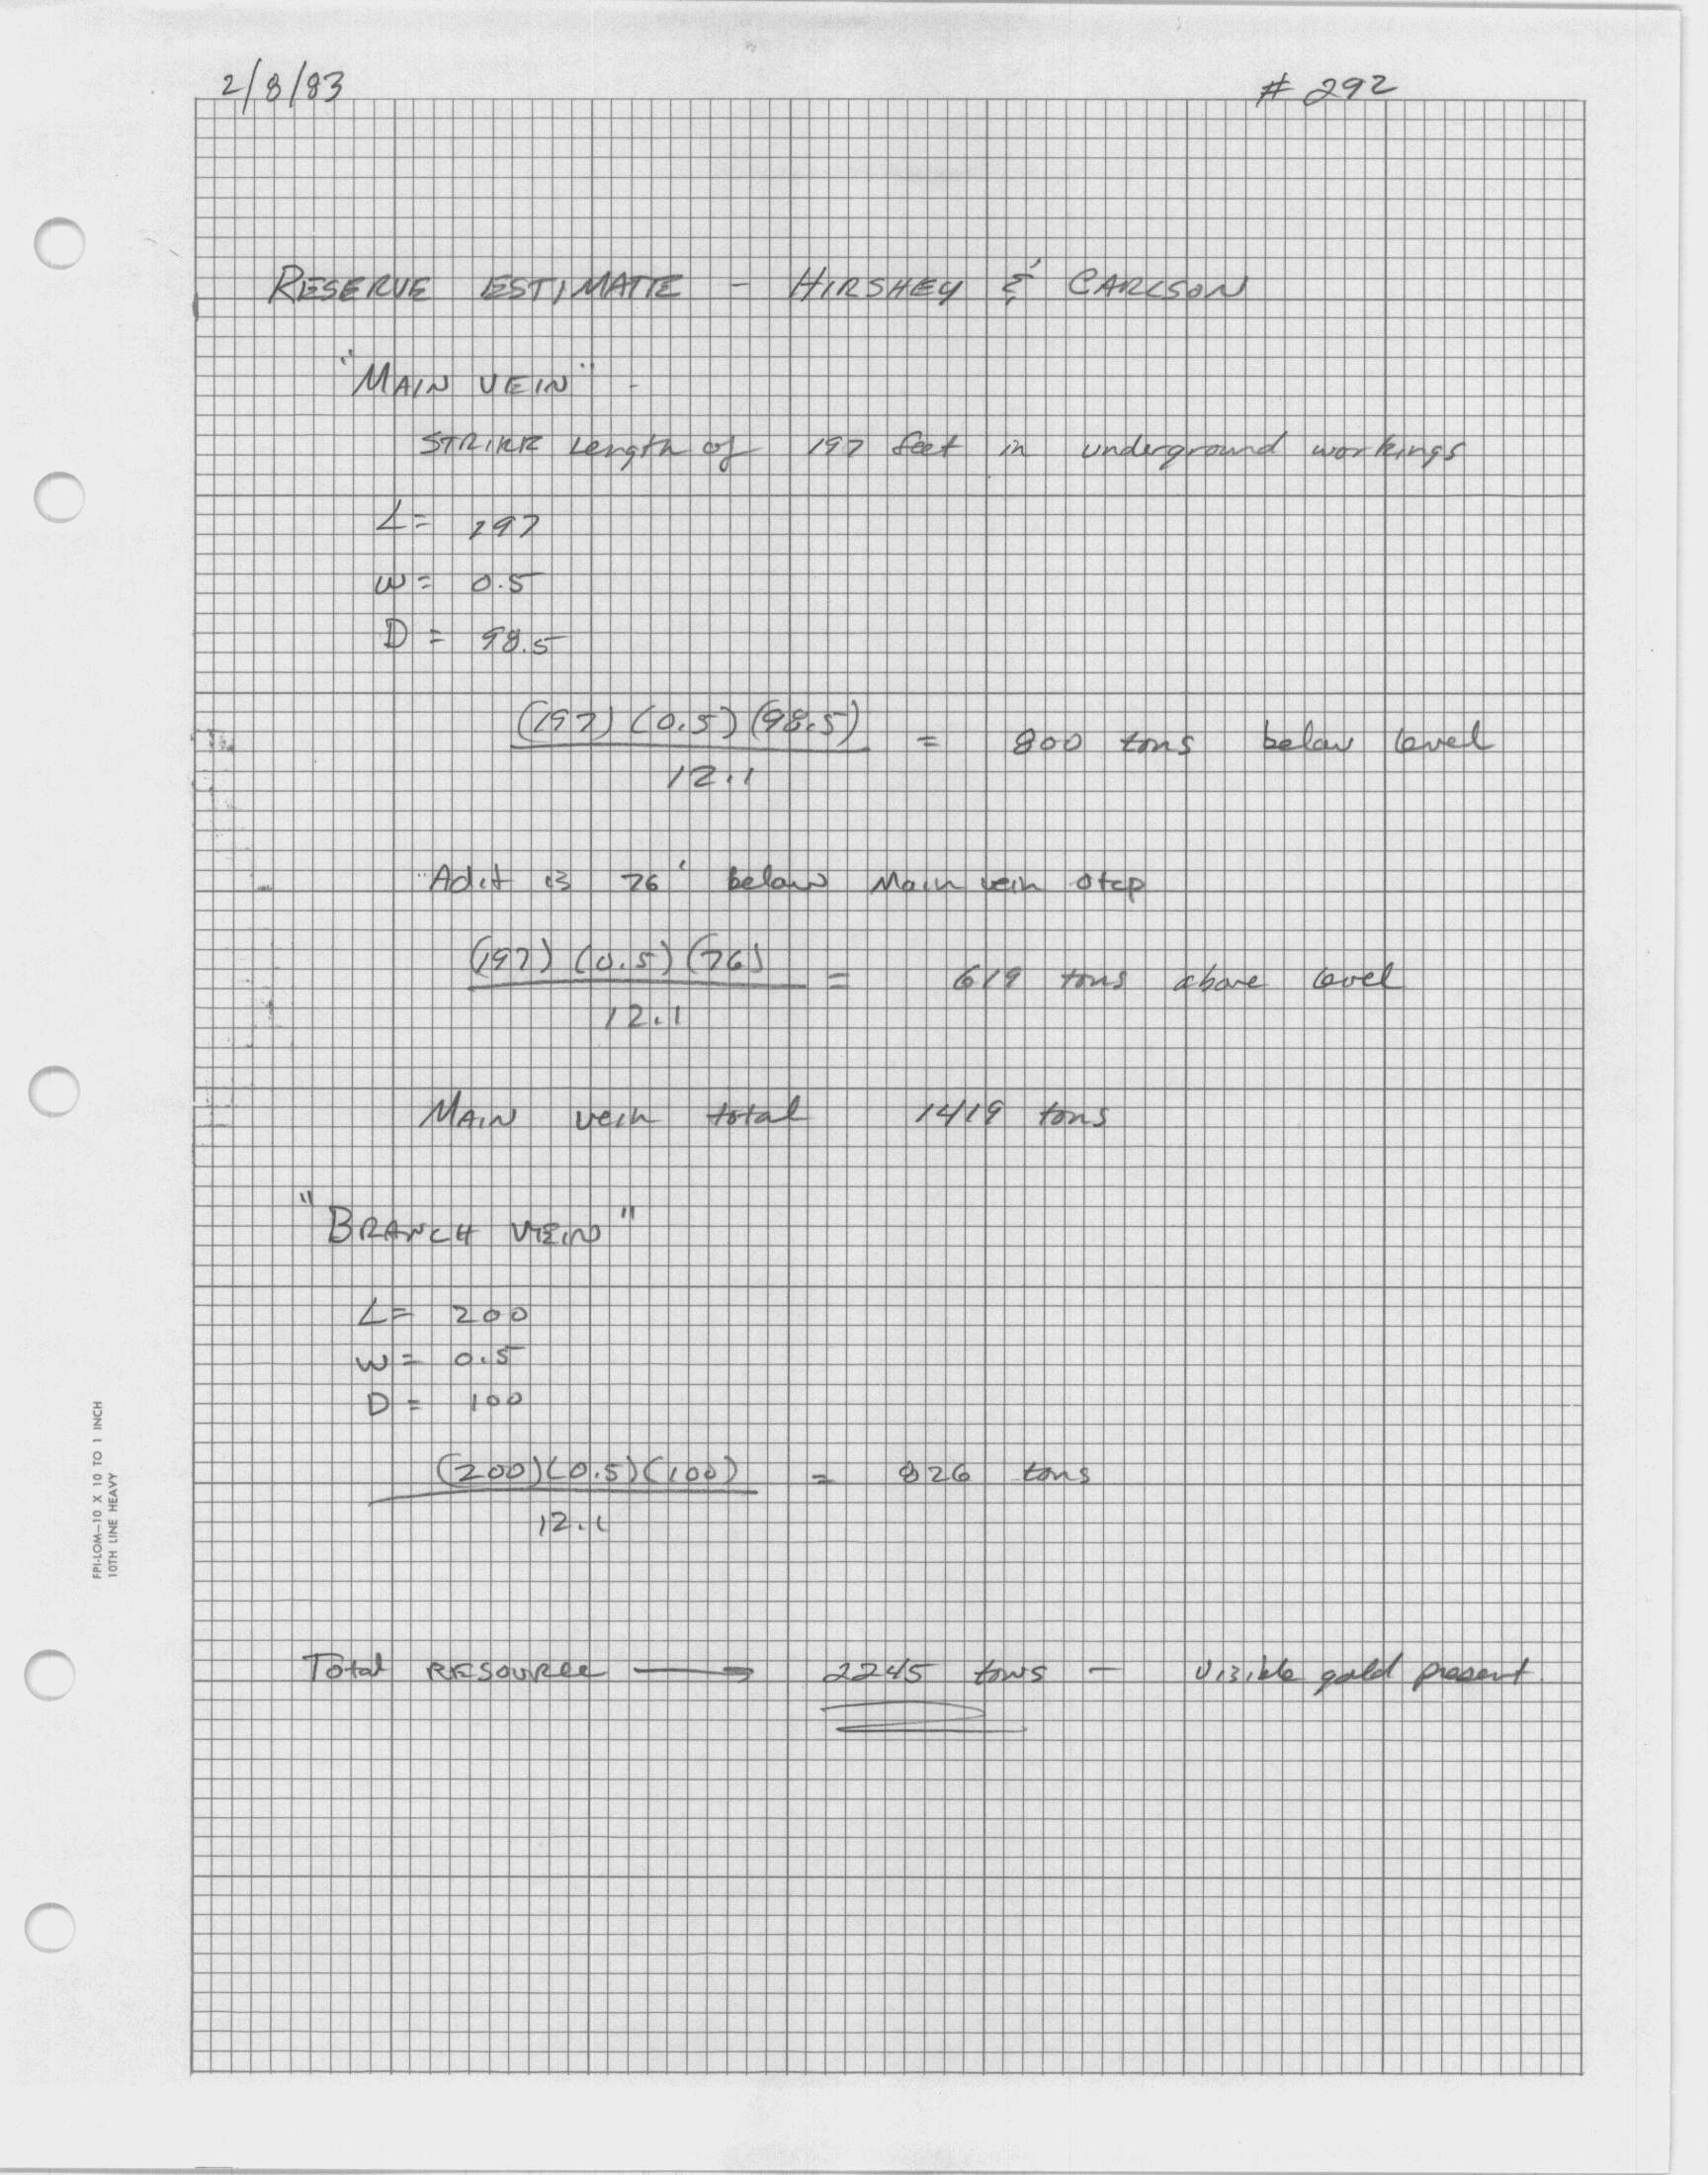 2/8/83 # 292
RESERVE ESTIMATE - HIRSHEY & CARLSON
"MAIN VEIN" -
STRIKE Length of 197 feet in underground workings
L= 197
W= 0.5
D = 98.5
(197) (0.5) (98.5)
12.1
= 800 tons below level
Adit is 76' below Main vein
(197) (0.5) (76)
12.1
= 619 tons above level
MAIN vein total 1419 tons
"BRANCH VEIN"
L= 200
W= 0.5
D = 100
(200)(0.5)(100)
12.1
= 826 tons
Total RESOURCE → 2245 tons - visible gold present.
FPI-LOM—10 X 10 TO 1 INCH
10TH LINE HEAVY